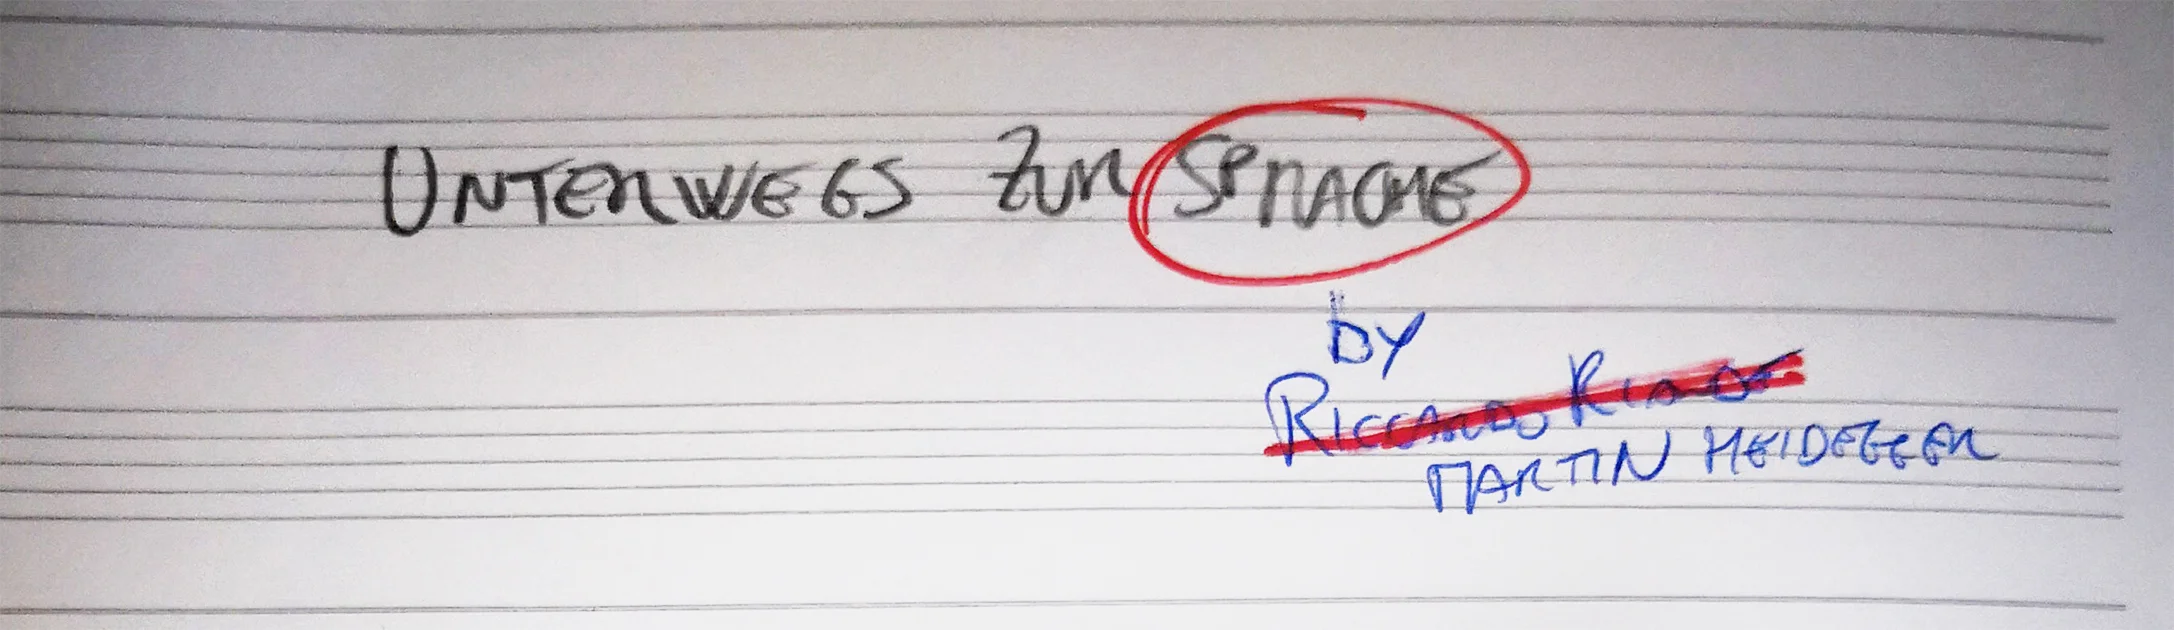 UNTERWEGS ZUR SPRACHE
by
RICCARDO
MARTIN HEIDEGGER